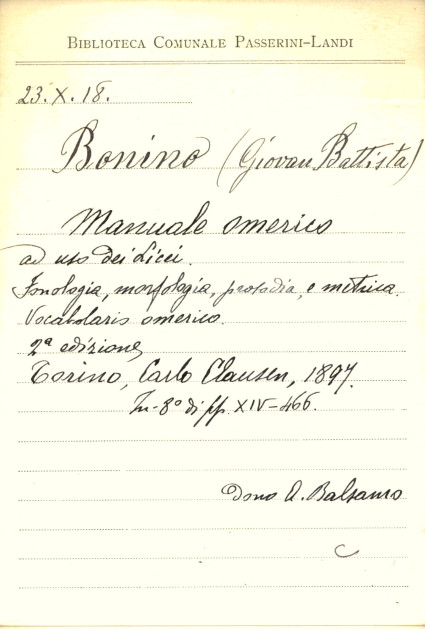 BIBLIOTECA COMUNALE PASSERINI-LANDI
23. X. 18.
Bonino (Giovan Battista)
Manuale omerico
ad uso dei Licei.
Fonologia, morfologia, prosodia, e metrica.
Vocabolario omerico.
2ª edizione,
Torino, Carlo Clausen, 1897.
In-8º di pp. XIV-466.
Dono A. Balsamo
C